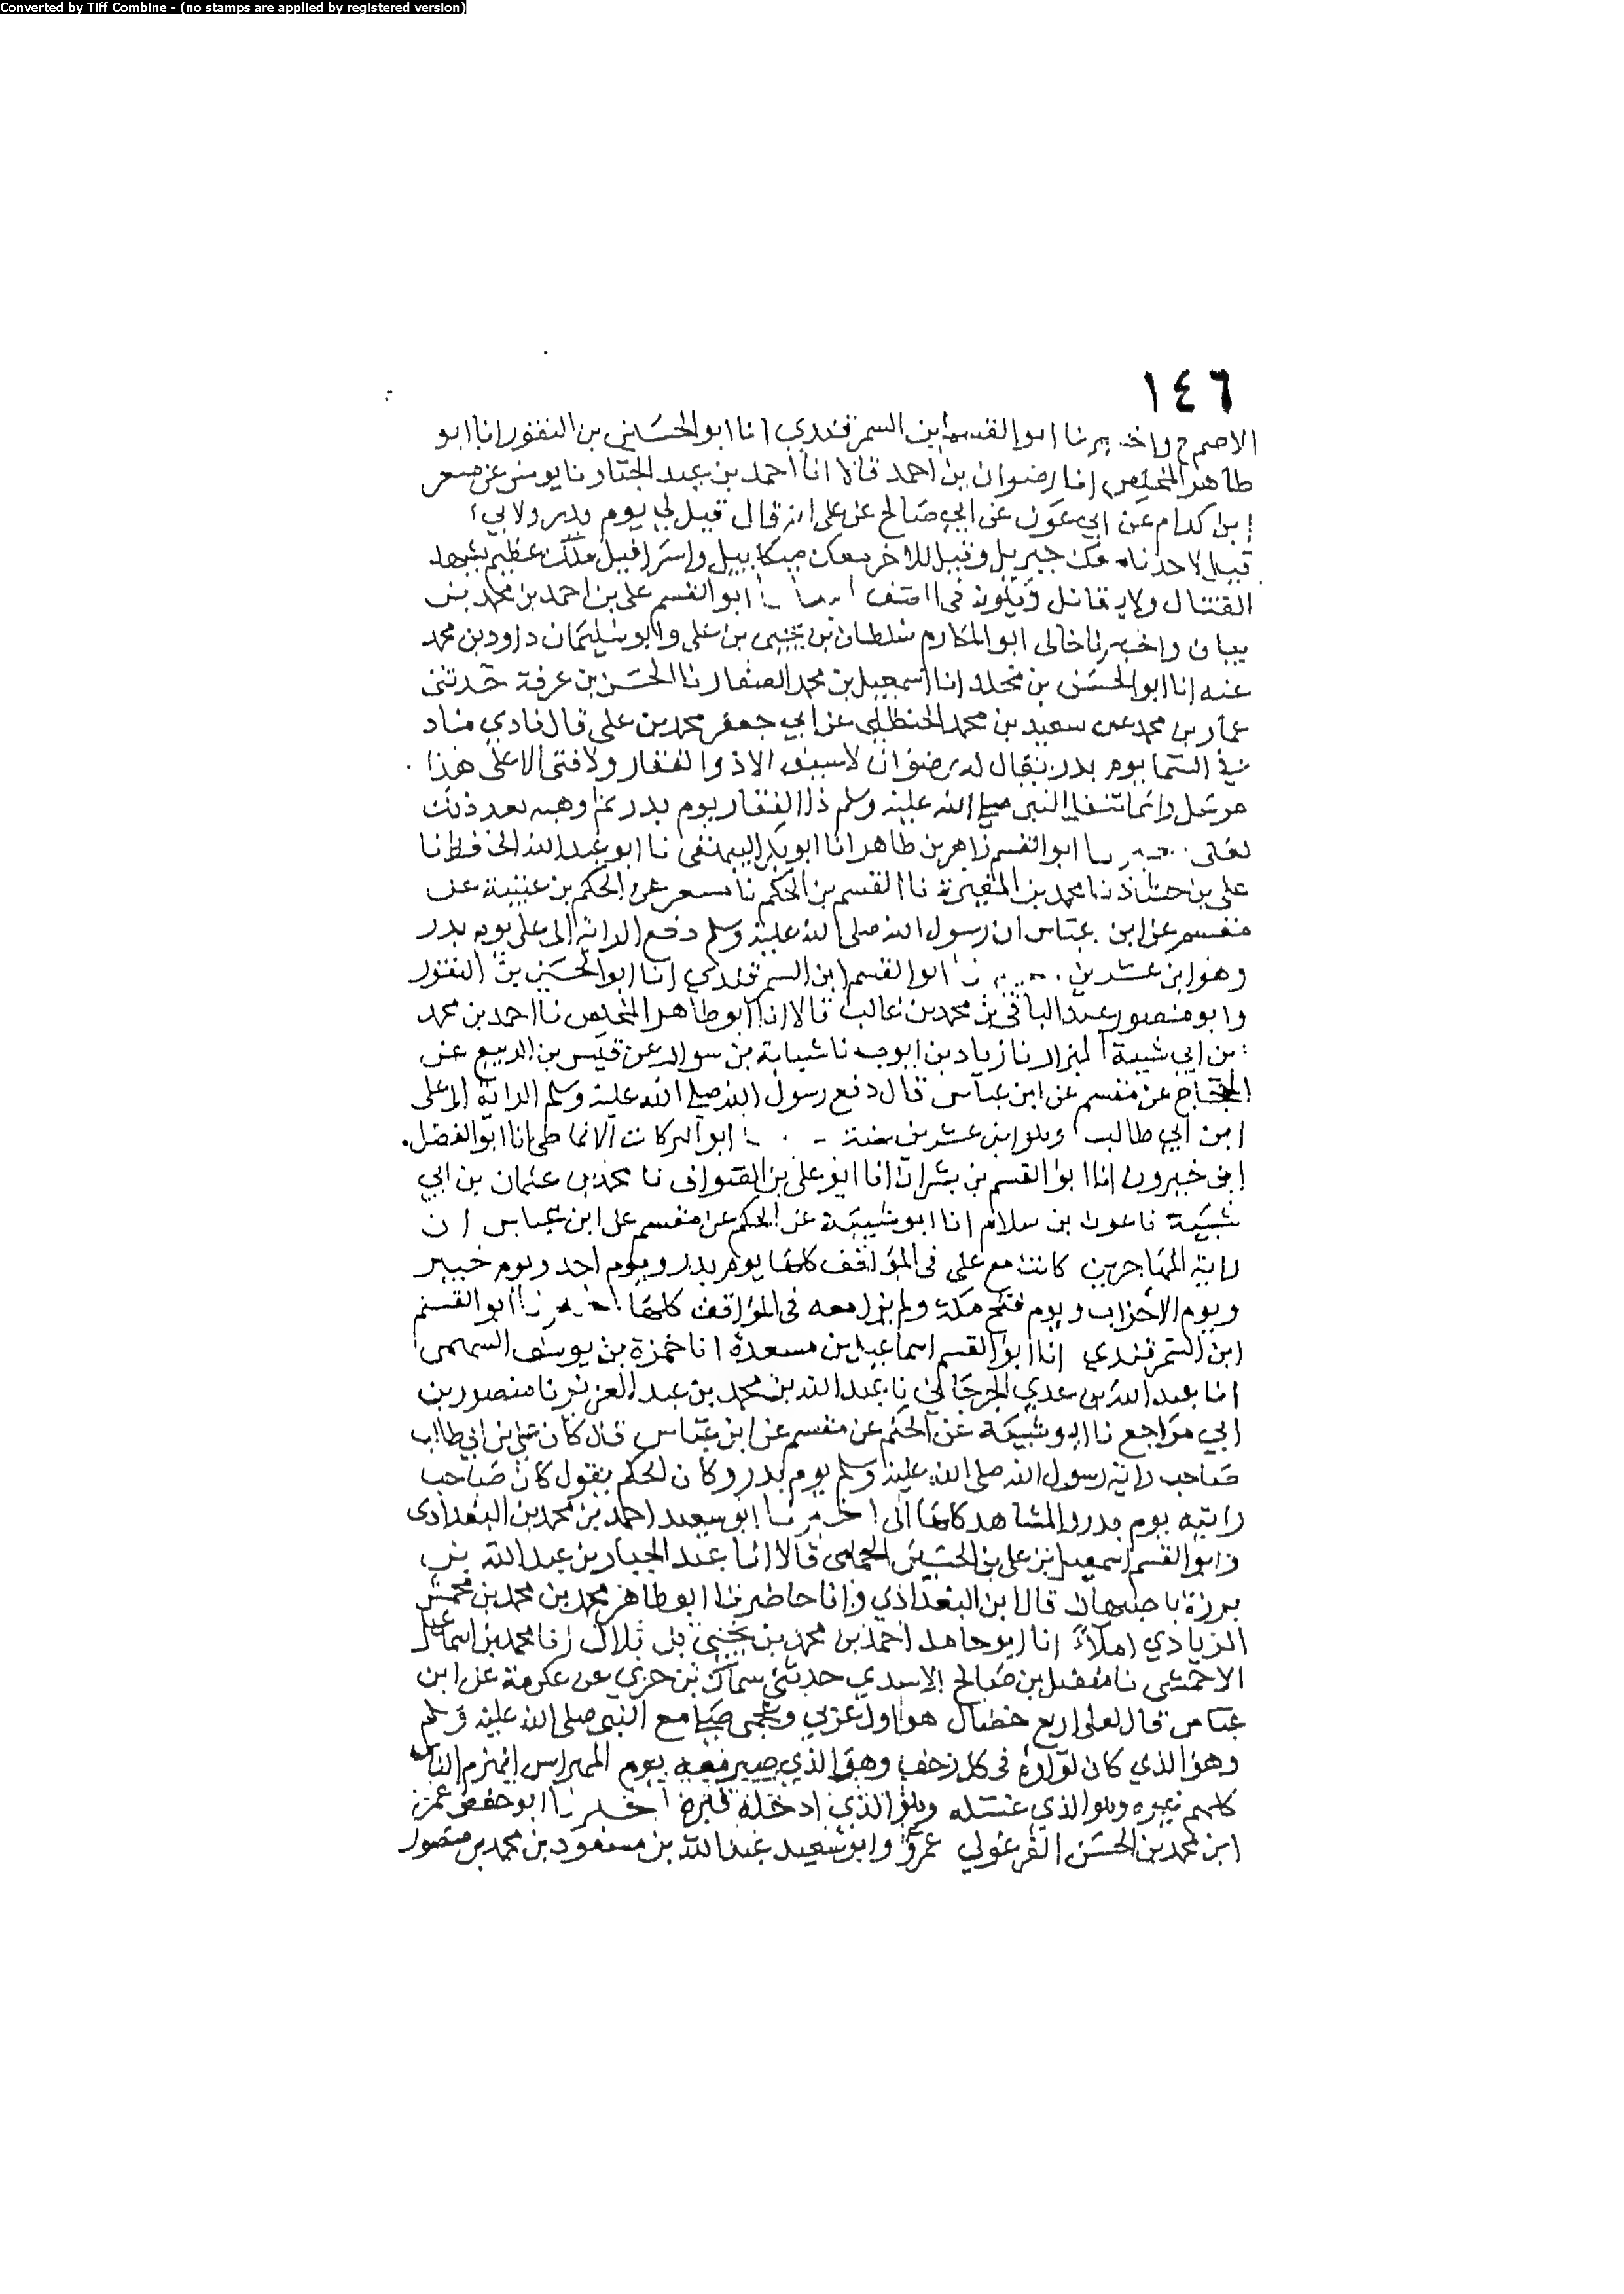 Converted by Tiff Combine - (no stamps are applied by registered version)
١٤٦
الاصم ح واخبرنا ابو القسم ابن السمرقندي انا ابو الحسين بن النقور انا ابو
طاهر المخلص انا رضوان بن احمد قالا انا احمد بن عبد الجبار نا يونس عن مسعر
ابن كدام عن ابي عون عن ابي صالح عن علي انه قال قيل لي يوم بدر ولابي
قيل لاحدنا معك جبريل وقيل للاخر معك ميكاييل واسرافيل ملك عظيم يشهد
القتال ولا يقاتل ويكون في الصف ابو القسم علي بن احمد بن محمد بن
بيان واخبرنا خالي ابو المكارم سلطان بن يحيى بن علي وابو سليمان داود بن محمد
عنه انا ابو الحسن بن مخلد انا اسمعيل بن محمد الصفار نا الحسن بن عرفة حدثني
عمار بن محمد عن سعيد بن محمد الحنظلي عن ابي جعفر محمد بن علي قال نادي مناد
في السما يوم بدر يقال له رضوان لا سيف الا ذو الفقار ولا فتى الا علي هذا
مرسل وانما تنفل النبي صلى الله عليه وسلم ذا الفقار يوم بدر ثم وهبه بعد ذلك
لعلي ابو القسم زاهر بن طاهر انا ابو بكر البيهقي نا ابو عبد الله الحافظ نا
علي بن حمشاذ نا محمد بن المغيرة نا القسم بن الحكم نا مسعر عن الحكم بن عتيبة عن
مقسم عن ابن عباس ان رسول الله صلى الله عليه وسلم دفع الراية الى علي يوم بدر
وهو ابن عشرين ابو القسم ابن السمرقندي انا ابو الحسين بن النقور
وابو منصور عبد الباقي بن محمد بن غالب قالا انا ابو طاهر المخلص نا احمد بن محمد
بن ابي شيبة البزاد نا زياد بن ايوب نا شبابة بن سوار عن قيس بن الربيع عن
الحجاج عن مقسم عن ابن عباس قال دفع رسول الله صلى الله عليه وسلم الراية الى علي
ابن ابي طالب وهو ابن عشرين سنة ابو البركات الانماطي انا ابو الفضل
ابن خيرون انا ابو القسم بن بشران انا ابو علي بن الصواف نا محمد بن عثمان بن ابي
شيبة نا عون بن سلام انا ابو شيبة عن الحكم عن مقسم عن ابن عباس ان
راية المهاجرين كانت مع علي في المواقف كلها يوم بدر ويوم احد ويوم خيبر
ويوم الاحزاب ويوم فتح مكة ولم يزل معه في المواقف كلها اخبرنا ابو القسم
ابن السمرقندي انا ابو القسم اسماعيل بن مسعدة انا حمزة بن يوسف السهمي
انا عبد الله بن عدي الجرجاني نا عبد الله بن محمد بن عبد العزيز نا منصور بن
ابي مزاجع نا ابو شيبة عن الحكم عن مقسم عن ابن عباس قال كان علي بن ابي طالب
صاحب راية رسول الله صلى الله عليه وسلم يوم بدر وكان الحكم يقول كان صاحب
رايته يوم بدر والمشاهد كلها اخبرنا ابو سعد احمد بن محمد بن البغدادى
وابو القسم اسمعيل بن علي بن الحسين الحمامي قالا انا عبد الجبار بن عبد الله بن
برزة باصبهان قال ابن البغداذي وانا حاضر نا ابو طاهر محمد بن محمد بن محمش
الزيادي املاءً انا ابو حامد احمد بن محمد بن يحيى بن بلال نا محمد بن اسماعيل
الاحمسي نا مفضل بن صالح الاسدي حدثني سماك بن حرب عن عكرمة عن ابن
عباس قال لعلي اربع خصال هو اول عربي وعجمي صلى مع النبي صلى الله عليه وسلم
وهو الذي كان لواوه في كل زحف وهو الذي صبر معه يوم المهراس انهزم الناس
كلهم غيره وهو الذي غسله وهو الذي ادخله قبره اخبرنا ابو حفص عمر
ابن محمد بن الحسن الفرغولي وابو سعيد عبد الله بن مسعود بن محمد بن منصور